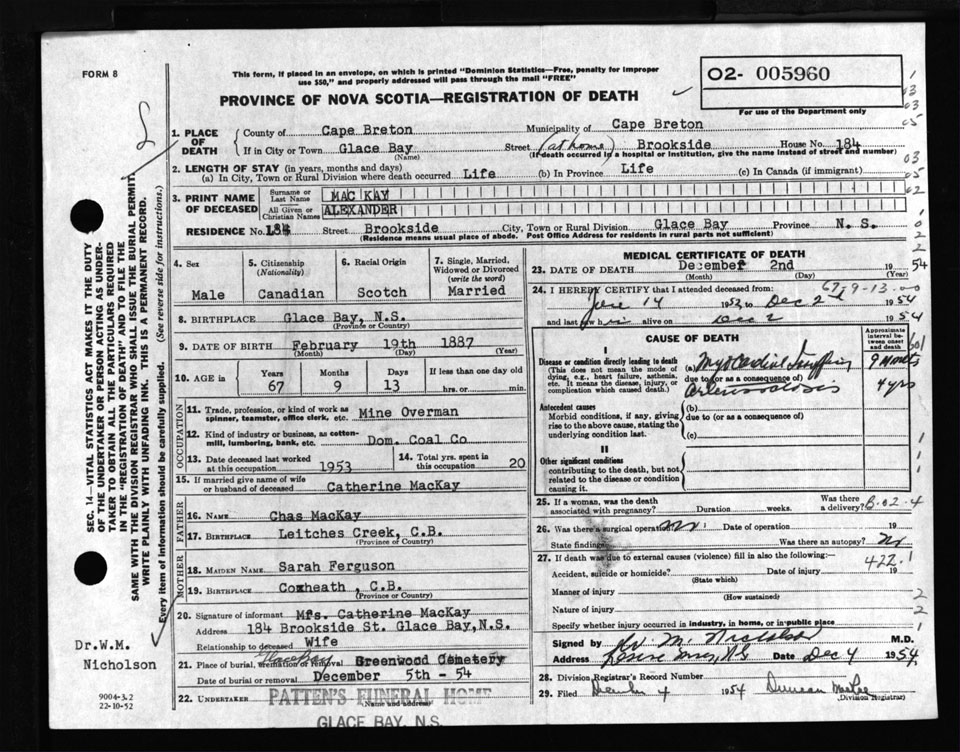 FORM 8
This form, if placed in an envelope, on which is printed "Dominion Statistics—Free, penalty for improper
use $50," and properly addressed will pass through the mail "FREE"
O2- 005960
For use of the Department only
PROVINCE OF NOVA SCOTIA—REGISTRATION OF DEATH
1. PLACE OF DEATH
County of Cape Breton Municipality of Cape Breton
If in City or Town Glace Bay (Name) Street (at home) Brookside House No. 184
(If death occurred in a hospital or institution, give the name instead of street and number)
2. LENGTH OF STAY (in years, months and days)
(a) In City, Town or Rural Division where death occurred Life (b) In Province Life (c) In Canada (if immigrant)
3. PRINT NAME OF DECEASED
Surname or Last Name MAC KAY
All Given or Christian Names ALEXANDER
RESIDENCE No. 184 Street Brookside City, Town or Rural Division Glace Bay Province N. S.
(Residence means usual place of abode. Post Office Address for residents in rural parts not sufficient)
4. Sex Male
5. Citizenship (Nationality) Canadian
6. Racial Origin Scotch
7. Single, Married, Widowed or Divorced (write the word) Married
8. BIRTHPLACE Glace Bay, N.S.
(Province or Country)
9. DATE OF BIRTH February 19th 1887
(Month) (Day) (Year)
10. AGE in Years 67 Months 9 Days 13 If less than one day old hrs. or min.
OCCUPATION
11. Trade, profession, or kind of work as spinner, teamster, office clerk, etc. Mine Overman
12. Kind of industry or business, as cotton-mill, lumbering, bank, etc. Dom. Coal Co
13. Date deceased last worked at this occupation 1953
14. Total yrs. spent in this occupation 20
15. If married give name of wife or husband of deceased Catherine MacKay
FATHER
16. NAME Chas MacKay
17. BIRTHPLACE Leitches Creek, C.B.
(Province or Country)
MOTHER
18. MAIDEN NAME Sarah Ferguson
19. BIRTHPLACE Coxheath C.B.
(Province or Country)
20. Signature of informant Mrs. Catherine MacKay
Address 184 Brookside St. Glace Bay, N.S.
Relationship to deceased Wife
21. Place of burial, cremation or removal Greenwood Cemetery
Date of burial or removal December 5th - 54
22. UNDERTAKER PATTEN'S FUNERAL HOME
(Name and address)
GLACE BAY, N.S.
MEDICAL CERTIFICATE OF DEATH
23. DATE OF DEATH December 2nd 1954
(Month) (Day) (Year)
67-9-13-00
24. I HEREBY CERTIFY that I attended deceased from:
June 14 1953 to Dec 2nd 1954
and last saw him alive on Dec 2 1954
CAUSE OF DEATH
Approximate interval between onset and death
I
Disease or condition directly leading to death
(This does not mean the mode of dying, e.g., heart failure, asthenia, etc. It means the disease, injury, or complication which caused death.)
(a) Myocardial 9 months
due to (or as a consequence of)
Arteriosclerosis 4 yrs
Antecedent causes
Morbid conditions, if any, giving rise to the above cause, stating the underlying condition last.
(b)
due to (or as a consequence of)
(c)
II
Other significant conditions
contributing to the death, but not related to the disease or condition causing it.
25. If a woman, was the death associated with pregnancy? Duration weeks. Was there a delivery?
26. Was there a surgical operation? No. Date of operation 19
State findings Was there an autopsy? No
27. If death was due to external causes (violence) fill in also the following:
422.1
Accident, suicide or homicide? Date of injury 19
(State which)
Manner of injury
(How sustained)
Nature of injury
Specify whether injury occurred in industry, in home, or in public place
Signed by W. M. Nicholson M.D.
Address N.S. Date Dec 4 1954
28. Division Registrar's Record Number
29. Filed 4 1954 Duncan
(Division Registrar)
SEC. 14—VITAL STATISTICS ACT MAKES IT THE DUTY
OF THE UNDERTAKER OR PERSON ACTING AS UNDER-
TAKER TO OBTAIN ALL THE PARTICULARS REQUIRED
IN THE "REGISTRATION OF DEATH" AND TO FILE THE
SAME WITH THE DIVISION REGISTRAR WHO SHALL ISSUE THE BURIAL PERMIT
WRITE PLAINLY WITH UNFADING INK. THIS IS A PERMANENT RECORD.
Every item of information should be carefully supplied. (See reverse side for instructions.)
Dr.W.M.
Nicholson
9004-3.2
22-10-52